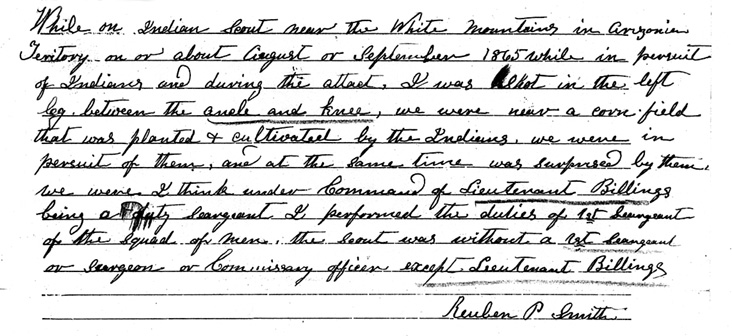 While on Indian Scout near the White Mountains in Arizonia
Teritory on or about August or September 1865 while in persuit
of Indians and during the attact, I was Shot in the left
leg, between the ancle and knee, we were near a corn field
that was planted & cultivated by the Indians, we were in
persuit of them, and at the same time was surprised by them,
we were I think under Command of Lieutenant Billings
being a Duty Seargeant I performed the duties of 1st Seargeant
of the Squad of men, the scout was without a 1st Seargeant
or Surgeon or Commissary officer except Lieutenant Billings
Reuben P Smith